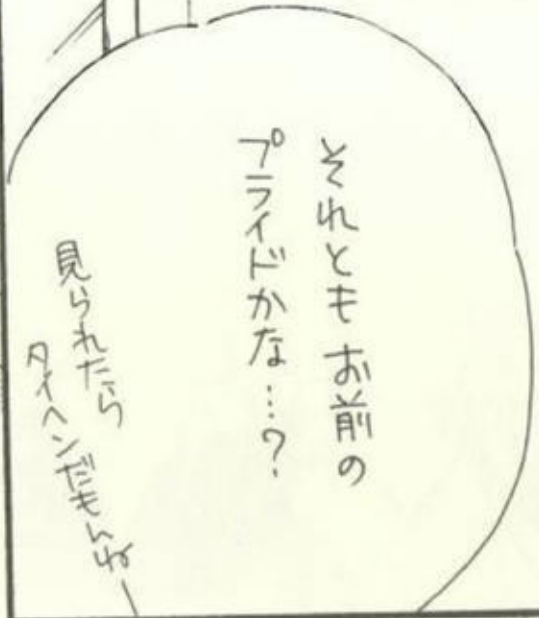 それとも お前の
プライドかな…?
見られたら
タイヘンだもんねー